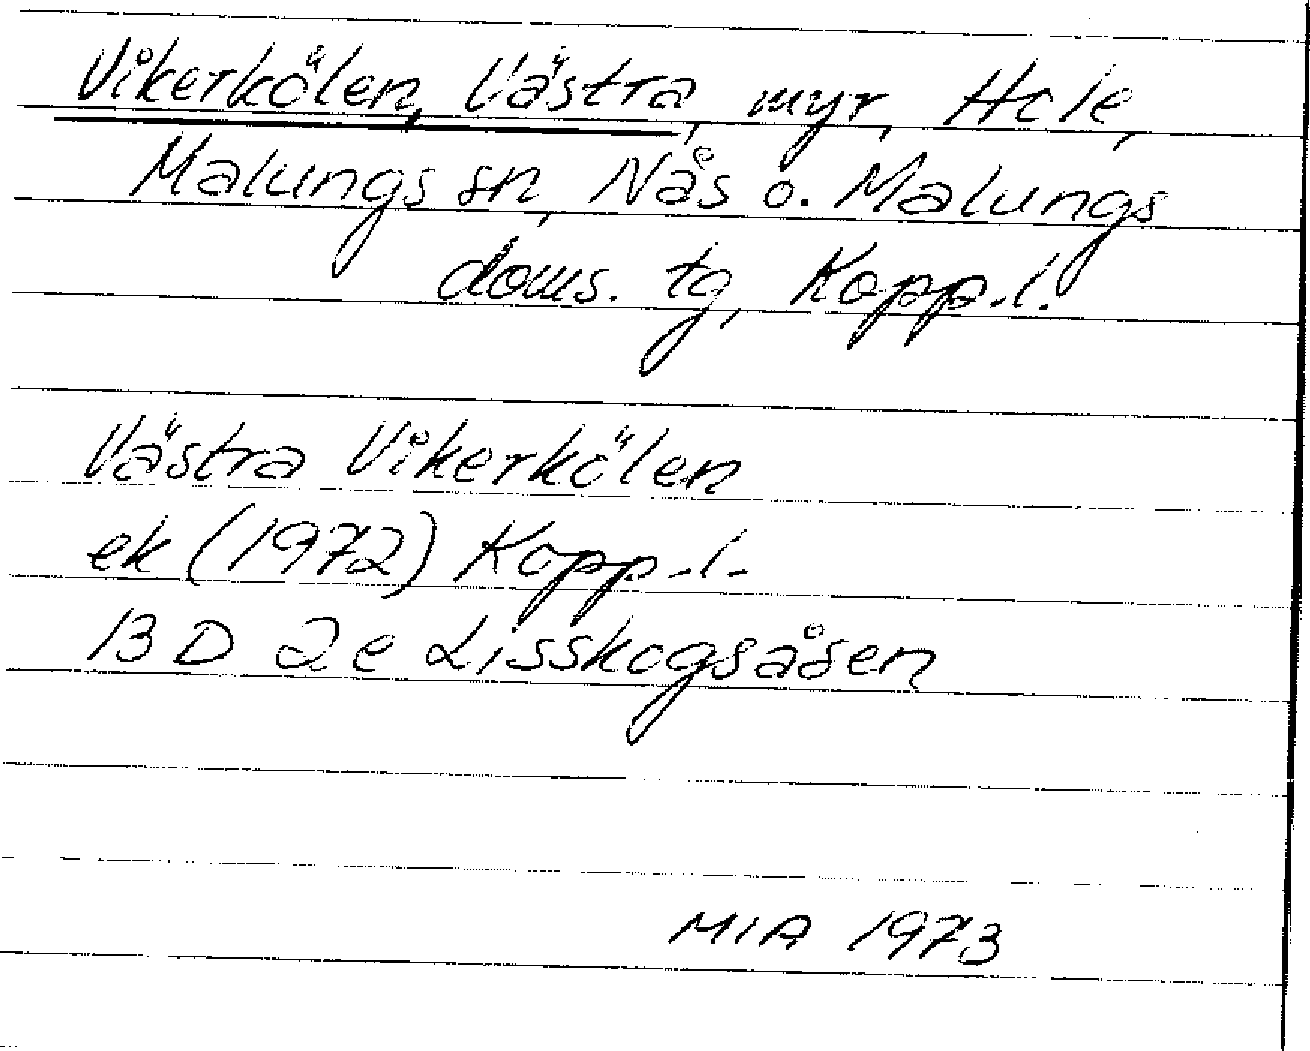 Vikerkölen, Västra, myr, Hole,
Malungs sn, Nås o. Malungs
doms. tg, Kopp.l.
Västra Vikerkölen
ek (1972) Kopp.l.
13 D 2e Lisskogsåsen
MIA 1973